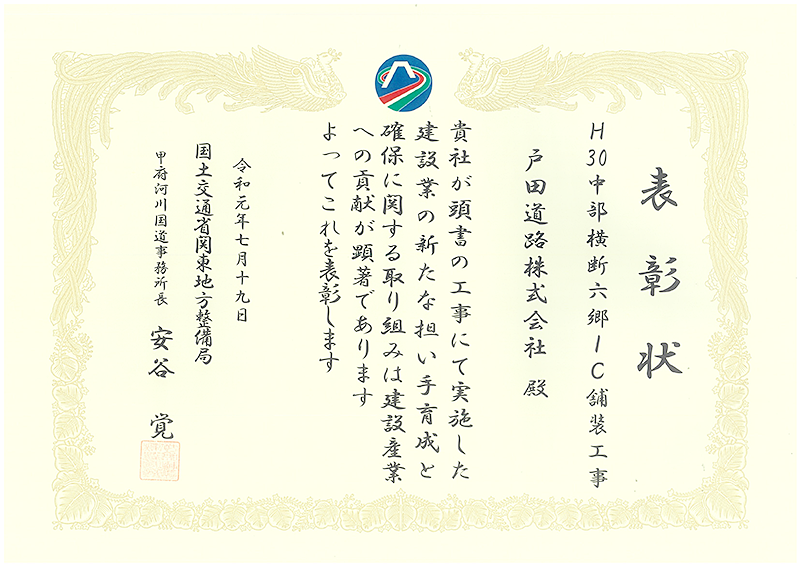 表彰状
H30中部横断六郷IC舗装工事
戸田道路株式会社 殿
貴社が頭書の工事にて実施した
建設業の新たな担い手育成と
確保に関する取り組みは建設産業
への貢献が顕著であります
よってこれを表彰します
令和元年七月十九日
国土交通省関東地方整備局
甲府河川国道事務所長 安谷 覚